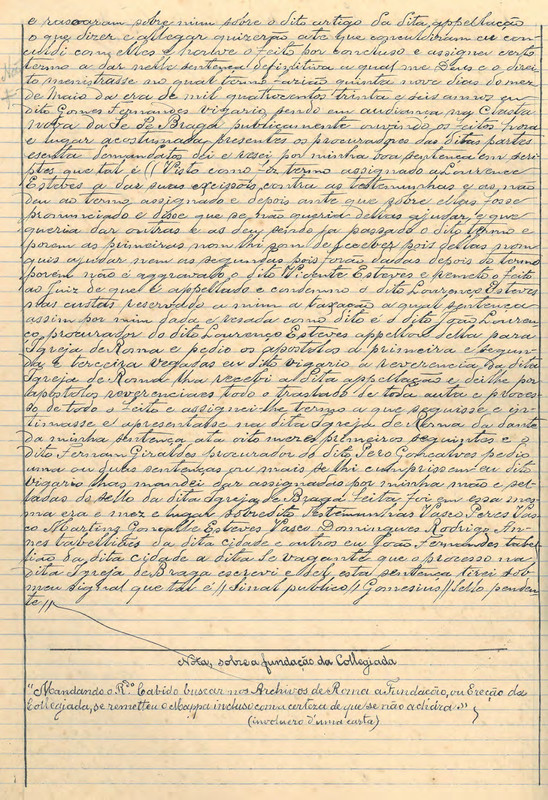 e rasoaram sobre mim sobre o dito artigo da dita appellação
o que dizer e allegar quizerão até que concludiram eu con-
cludi com elles e houve o feito por concluso e assignei certo
termo a dar nelle sentença definitiva a qual me Deus e o direi-
to menistrasse no qual termo farião quinta nove dias do mez
de Maio da era de mil quatrocentos trinta e seis annos eu
dito Gomes Fernandes vigario sendo em audiança na Clasta
nova da Sé de Braga publicamente ouvindo os feitos hora
e lugar acostumada presentes os procuradores das ditas partes
esenta demandatos dei e resei por minha boa sentença em scri-
ptos que tal é // Visto como foi termo assignado a Lourence
Esteves a dar suas excissois contra as testemunhas e as não
deu ao termo assignado e depois ante que sobre ellas fosse
pronunciado e disse que se não queria dellas ajudar e que
queria dar outras e as deu seindo ja passado o dito termo e
porem as primeiras nom lhi som de receber pois dellas nom
quis ajudar nem as segundas pois forão dadas depois do termo
porém não é aggravado o dito Vicente Esteves e remeto o feito
ao Juiz de quel é appellado e condemno o dito Lourenço Esteves
nas custas reservado a mim a taxação a qual sentença
assim por mim dada e resada como dito é o dito João Louren-
ço procurador do dito Lourenço Esteves appellou della para
Igreja de Roma e pedio os apostolos a primeira e segun-
da e terceira vegadas eu dito vigario a reverencia da dita
Igreja de Roma lha recebi a dita appellação e deilhe por
apostolos reverenciaes todo o traslado de toda auta e proces-
so de todo o feito e assignei-lhe termo a que seguisse e in-
timasse e apresentasse na dita Igreja de Roma do dante
da minha sentença ata oito mezes primeiros seguintes e o
dito Fernam Giraldes procurador do dito Pero Gonçalves pedio
uma ou duas sentenças ou mais se lhi cumprissem eu dito
vigario lhas mandei dar assignadas por minha mão e sel-
ladas do sello da dita Igreja de Braga feita foi em essa mes-
ma era e mez e lugar sobredito Testemunhas Vasco Peres Vas-
co Martins Gonçalle Esteves Vasco Domingues Rodrigo An-
nes tabelliões da dita cidade e outros eu João Fernandes tabel-
lião da dita cidade a dita Sé vagante que o processo na
dita Igreja de Braga escrevi e del esta sentença tirei sob
meu signal que tal é // Sinal publico // Gomesius // Sello penden-
te //
Nota, sobre a fundação da Collegiada
"Mandando o R.do Cabido buscar nos Archivos de Roma a Fundação, ou Ereção da
Collegiada, se remetteu o Mappa incluso com a certeza de que se não achára."
(involucro d'uma carta)